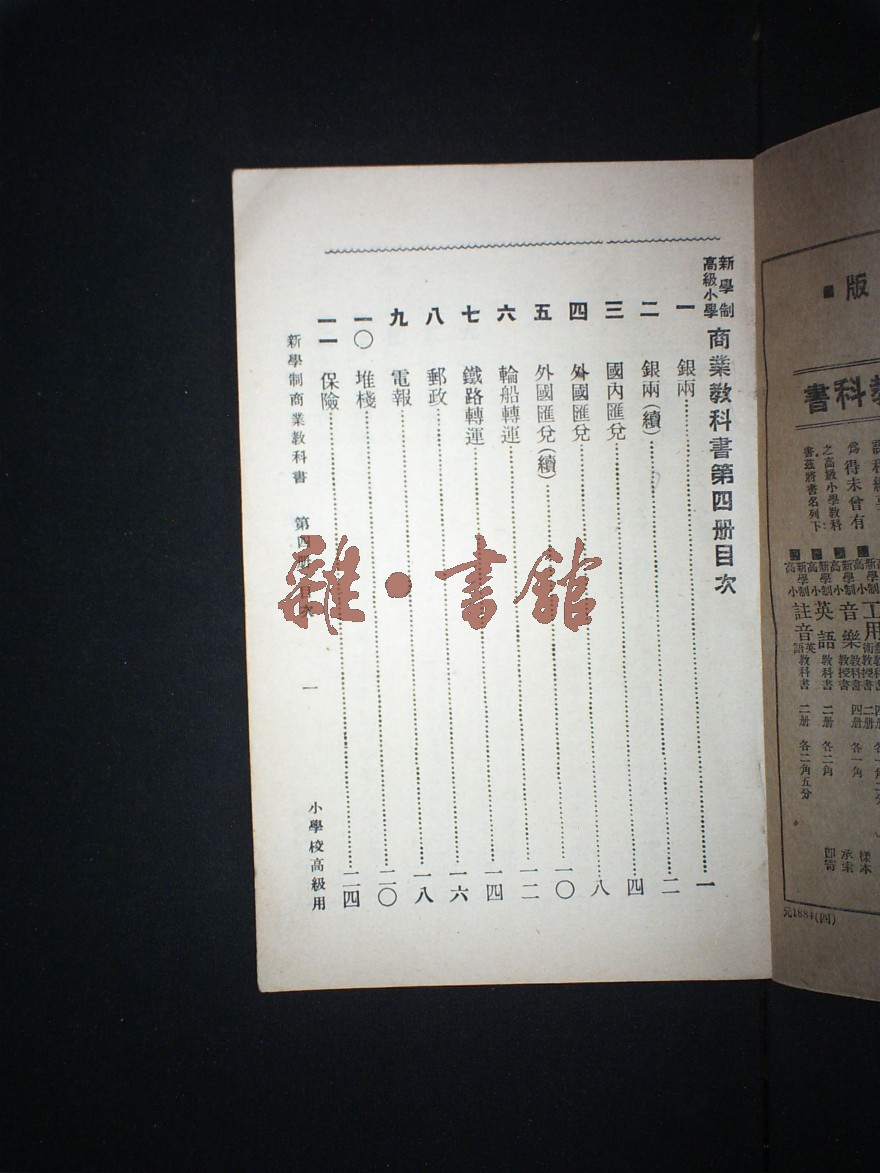 版
教科書
為得未曾有
之高級小學教科
書茲將書名列下
工用
音樂
英語
註音英語
教授書
教科書
教科書
四册
二册
二册
各一角
各二角
各二角五分
樣本
承索
即寄
元1884(四)
新學制
高級小學
商業教科書第四册目次
一 銀兩 一
二 銀兩(續) 二
三 國內匯兌 四
四 外國匯兌 八
五 外國匯兌(續) 一〇
六 輪船轉運 一二
七 鐵路轉運 一四
八 郵政 一六
九 電報 一八
一〇 堆棧 二〇
一一 保險 二四
新學制商業教科書 第四册 目次 一 小學校高級用
雜·書館